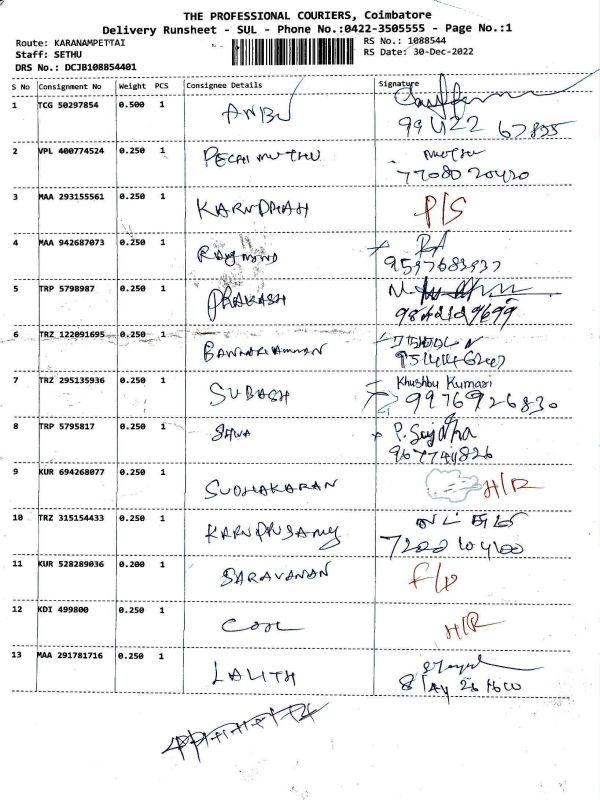 THE PROFESSIONAL COURIERS, Coimbatore
Delivery Runsheet - SUL - Phone No.:0422-3505555 - Page No.:1
Route: KARANAMPETTAI
RS No.: 1088544
Staff: SETHU
RS Date: 30-Dec-2022
DRS No.: DCJB108854401
S No Consignment No Weight PCS Consignee Details Signature
1 TCG 50297854 0.500 1 ANBU
994422 67835
2 VPL 400774524 0.250 1 PECHI MUTHU Muthu
7708020420
3 MAA 293155561 0.250 1 KARUPPIAH P/S
4 MAA 942687073 0.250 1 Raymond
9597683937
5 TRP 5798987 0.250 1 PRAKASH
6 TRZ 122091695 0.250 1 BANNARIAMMAN
7 TRZ 295135936 0.250 1 SUBASH Khushbu Kumari
9976926830
8 TRP 5795817 0.250 1 SHIVA P. Sujitha
9677444826
9 KUR 694268077 0.250 1 SUDHAKARAN H/R
10 TRZ 315154433 0.250 1 KARUPPUSAMY
7200210400
11 KUR 528289036 0.200 1 SARAVANAN
12 KDI 499800 0.250 1 H/R
13 MAA 291781716 0.250 1 LALITH